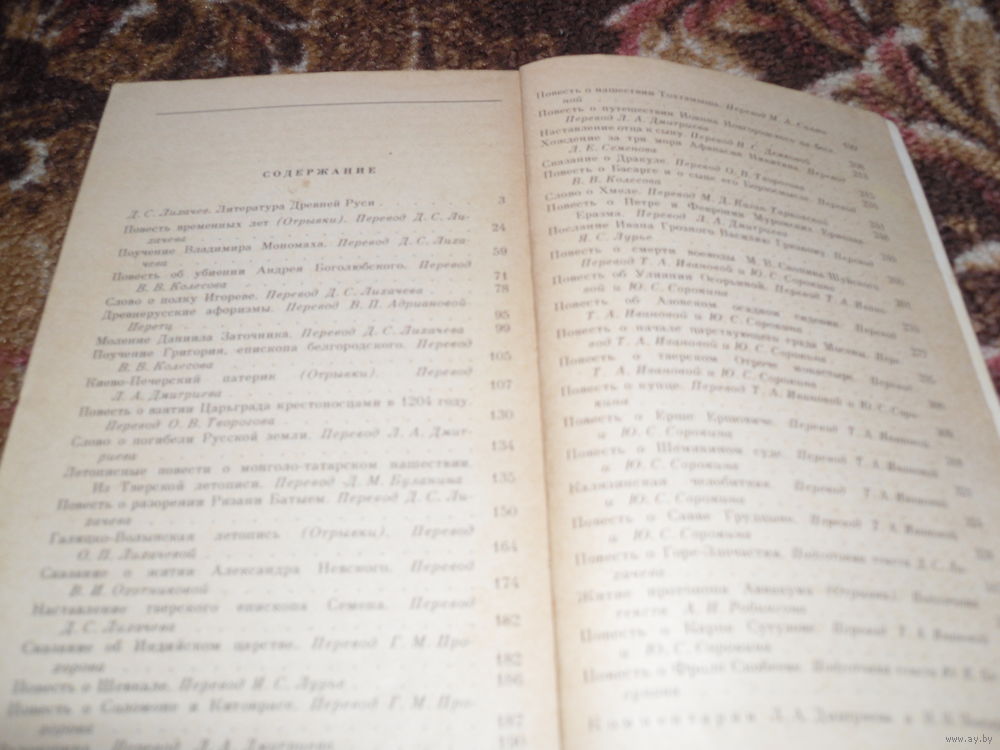 СОДЕРЖАНИЕ
Д. С. Лихачев. Литература Древней Руси . 3
Повесть временных лет (Отрывки). Перевод Д. С. Ли-
хачева 24
Поучение Владимира Мономаха. Перевод Д. С. Лиха-
чева 59
Повесть об убиении Андрея Боголюбского. Перевод
В. В. Колесова 71
Слово о полку Игореве. Перевод Д. С. Лихачева 78
Древнерусские афоризмы. Перевод В. П. Адриановой-
Перетц 95
Моление Даниила Заточника. Перевод Д. С. Лихачева 99
Поучение Григория, епископа белгородского. Перевод
В. В. Колесова 105
Киево-Печерский патерик (Отрывки). Перевод
Л. А. Дмитриева 107
Повесть о взятии Царьграда крестоносцами в 1204 году.
Перевод О. В. Творогова 130
Слово о погибели Русской земли. Перевод Л. А. Дмит-
риева 134
Летописные повести о монголо-татарском нашествии.
Из Тверской летописи. Перевод Д. М. Буланина 135
Повесть о разорении Рязани Батыем. Перевод Д. С. Ли-
хачева 150
Галицко-Волынская летопись (Отрывки). Перевод
О. П. Лихачевой 164
Сказание о житии Александра Невского. Перевод
В. И. Охотниковой 174
Наставление тверского епископа Семена. Перевод
Д. С. Лихачева 182
Сказание об Индийском царстве. Перевод Г. М. Про-
хорова 182
Повесть о Шевкале. Перевод Я. С. Лурье 186
Повесть о Соломоне и Китоврасе. Перевод Г. М. Про-
хорова 187
Перевод Л. А. Дмитриева 190
Повесть о нашествии Тохтамыша. Перевод М. А. Салми-
ной
Повесть о путешествии Иоанна Новгородского на бесе.
Перевод Л. А. Дмитриева
Наставление отца к сыну. Перевод
Хождение за три моря Афанасия Никитина. Перевод
Л. С. Семенова
Сказание о Дракуле. Перевод О. В. Творогова
Повесть о Басарге и о сыне его Борзосмысле. Перевод
В. В. Колесова
Слово о Хмеле. Перевод М. Д. Каган-Тарковской
Повесть о Петре и Февронии Муромских Ермолая-
Еразма. Перевод Л. А. Дмитриева
Послание Ивана Грозного Василию Грязному. Перевод
Я. С. Лурье
Повесть о смерти воеводы М. В. Скопина-Шуйского
Перевод Т. А. Ивановой и Ю. С. Сорокина
Повесть об Улиянии Осорьиной. Перевод Т. А. Ивано-
вой и Ю. С. Сорокина
Повесть об Азовском осадном сидении. Перевод
Т. А. Ивановой и Ю. С. Сорокина
Повесть о начале царствующего града Москвы. Пере-
вод Т. А. Ивановой и Ю. С. Сорокина
Повесть о тверском Отроче монастыре. Перевод
Т. А. Ивановой и Ю. С. Сорокина
Повесть о купце. Перевод Т. А. Ивановой и Ю. С. Соро-
кина
Повесть о Ерше Ершовиче. Перевод Т. А. Ивановой
и Ю. С. Сорокина
Повесть о Шемякином суде. Перевод Т. А. Ивановой
и Ю. С. Сорокина
Калязинская челобитная. Перевод Т. А. Ивановой
и Ю. С. Сорокина
Повесть о Савве Грудцыне. Перевод Т. А. Ивановой
и Ю. С. Сорокина
Повесть о Горе-Злочастии. Подготовка текста Д. С. Ли-
хачева
Житие протопопа Аввакума (отрывки). Подготовка
текста А. Н. Робинсона
Повесть о Карпе Сутулове. Перевод Т. А. Ивановой
и Ю. С. Сорокина
Повесть о Фроле Скобееве. Подготовка текста Ю. К. Бе-
гунова
Комментарии Л. А. Дмитриева и
www.ay.by